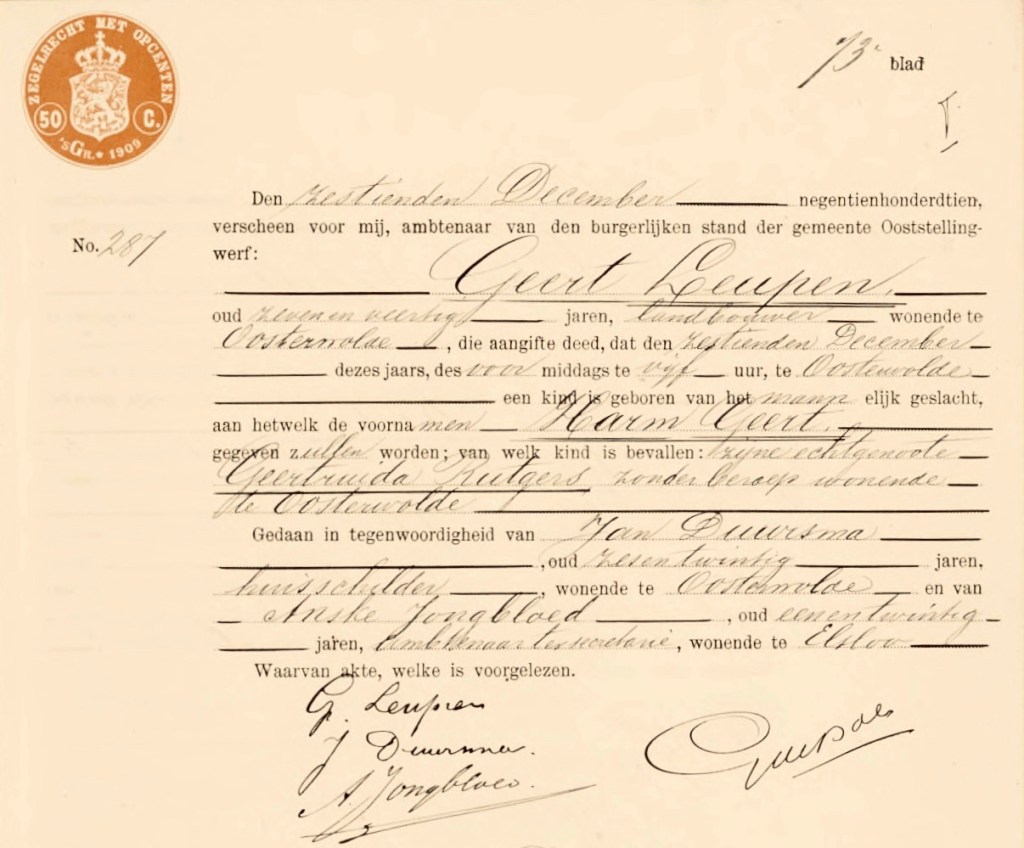 ZEGELRECHT MET OPCENTEN
50 C.
'sGr. * 1909
73e blad
No. 287
Den zestienden December negentienhonderdtien,
verscheen voor mij, ambtenaar van den burgerlijken stand der gemeente Ooststelling-
werf:
Geert Leupen,
oud zevenenveertig jaren, landbouwer wonende te
Oosterwolde, die aangifte deed, dat den zestienden December
dezes jaars, des voor middags te vijf uur, te Oosterwolde
een kind is geboren van het mann elijk geslacht,
aan hetwelk de voornamen Harm Geert.
gegeven zullen worden; van welk kind is bevallen: zijne echtgenoote
Geertruida Rutgers zonder beroep wonende
te Oosterwolde
Gedaan in tegenwoordigheid van Jan Duursma
, oud zesentwintig jaren,
huisschilder, wonende te Oosterwolde en van
Anske Jongbloed, oud eenentwintig
jaren, ambtenaar ter secretarie, wonende te Elsloo
Waarvan akte, welke is voorgelezen.
G. Leupen
J Duursma.
A. Jongbloed